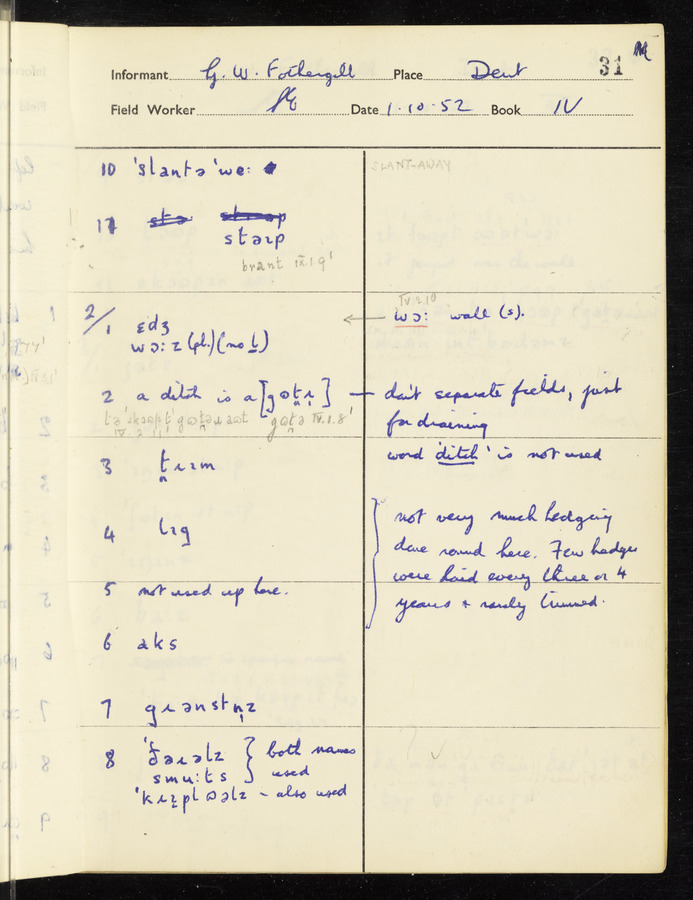 31
Informant G. W. Fothergill Place Dent
Field Worker Date 1·10·52 Book IV
10 'slantə 'we: SLANT-AWAY
11
stəɪp
brant IX.1.9'
IV.2.10
2/1 ɛdʒ wɔ: wall (s).
wɔ:z (pl.) (no t)
2 a ditch is a [gɒtɪ] — don't separate fields, just
for draining
gɒtə IV.1.8'
word 'ditch' is not used
3 tɹɪm
4 lɪg
not very much hedging
done round here. Few hedges
were laid every three or 4
years + rarely trimmed.
5 not used up here.
6 aks
7 gɹəʊnstn̩z
8 both names
smu:ts used
– also used